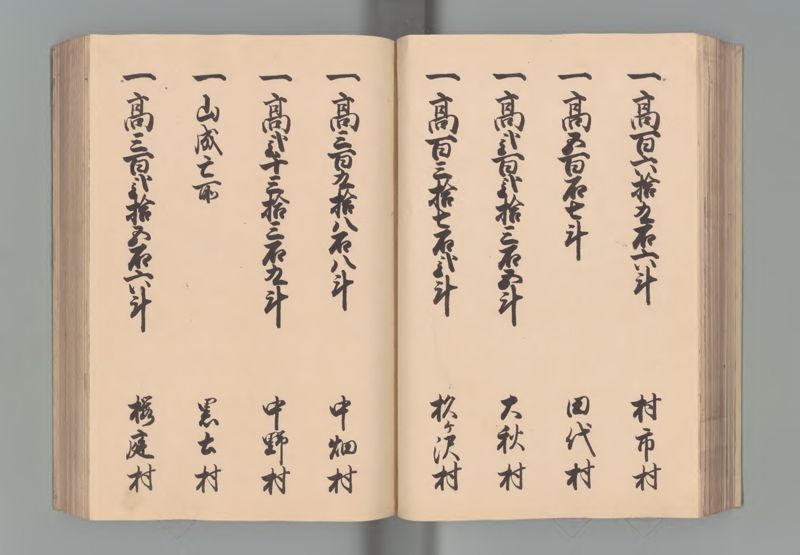 一 高百六拾九石六斗 村市村
一 高五百石七斗 田代村
一 高弐百弐拾三石五斗 大秋村
一 高百三拾七石弐斗 杦ヶ沢村
一 高三百九拾八石八斗 中畑村
一 高弐千三拾三石九斗 中野村
一 山成亡所 黒土村
一 高三百弐拾五石六斗 櫻庭村